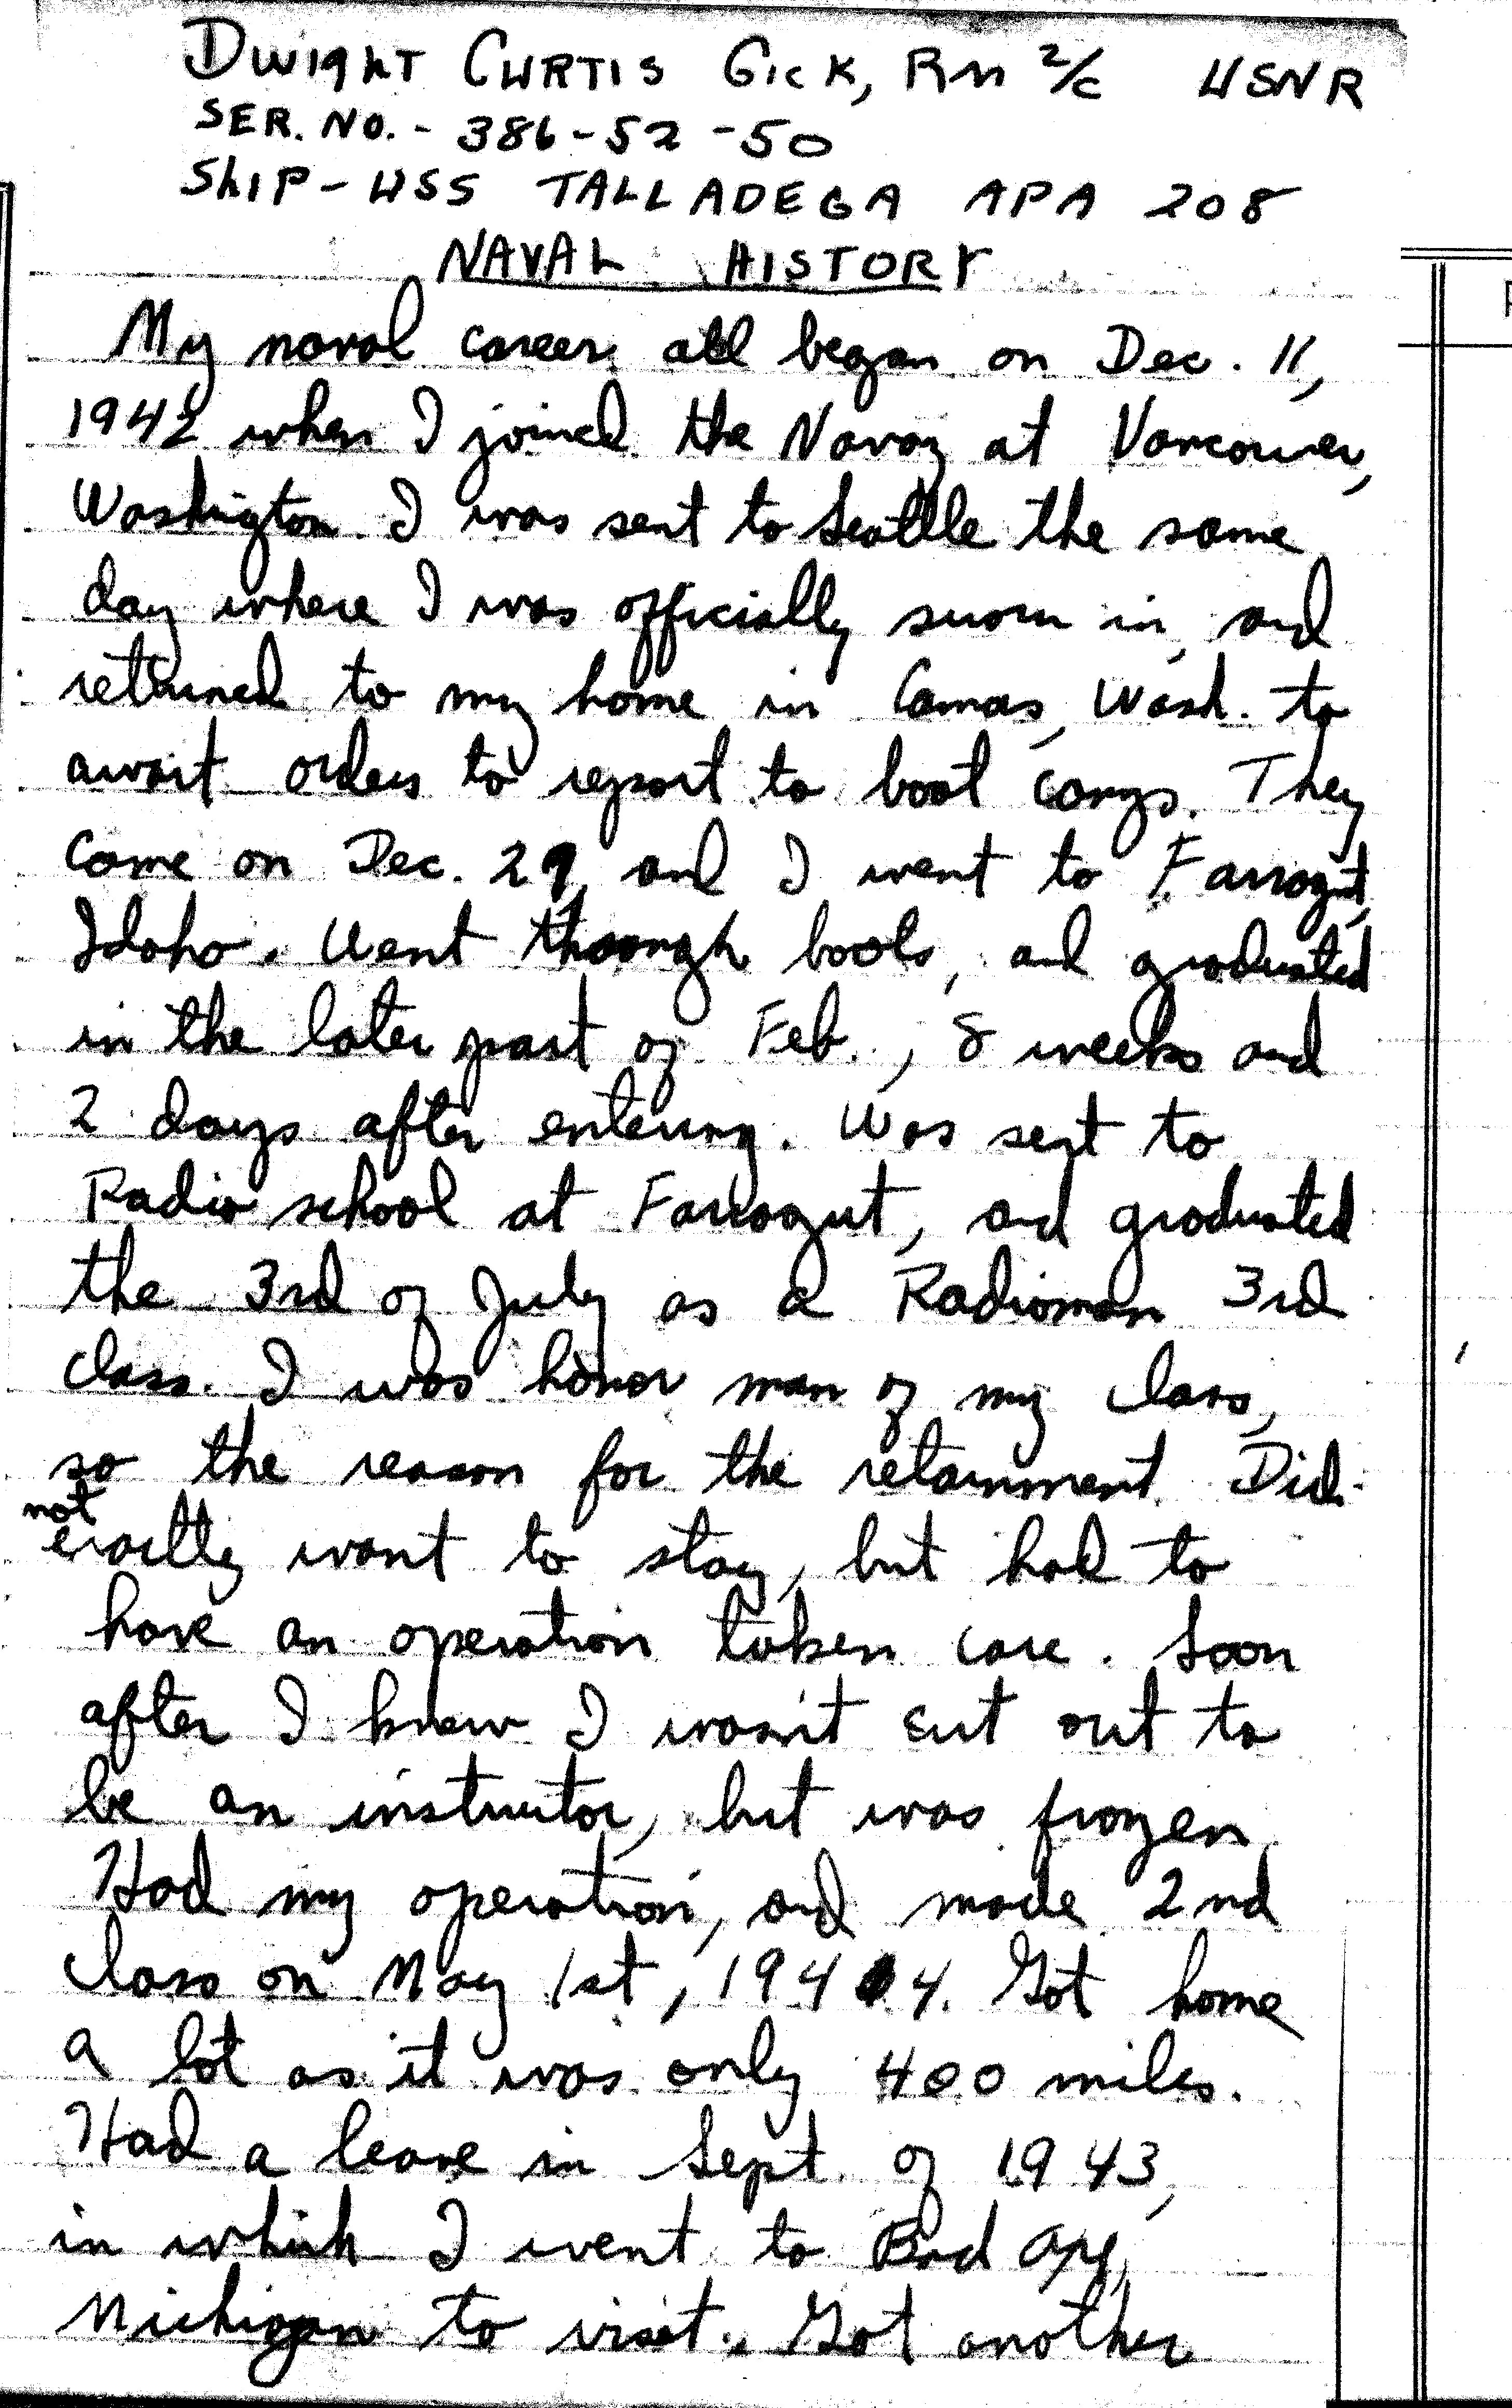 Dwight Curtis Gick, Rm 2/c USNR
SER. NO. - 386-52-50
Ship - USS TALLADEGA APA 208
NAVAL HISTORY
My naval career all began on Dec. 11,
1942 when I joined the Navy at Vancouver,
Washington. I was sent to Seattle the same
day where I was officially sworn in, and
returned to my home in Camas, Wash. to
await orders to report to boot camp. They
came on Dec. 29, and I went to Farragut,
Idaho. Went through boots, and graduated
in the later part of Feb., 8 weeks and
2 days after entering. Was sent to
Radio school at Farragut, and graduated
the 3rd of July as a Radioman 3rd
class. I was honor man of my class,
so the reason for the retainment. Did
not
exactly want to stay, but had to
have an operation taken care. Soon
after I knew I wasn't cut out to
be an instructor, but was frozen.
Had my operation, and made 2nd
class on May 1st, 1944. Got home
a lot as it was only 400 miles.
Had a leave in Sept. of 1943,
in which I went to Bad Axe,
Michigan to visit. Got another